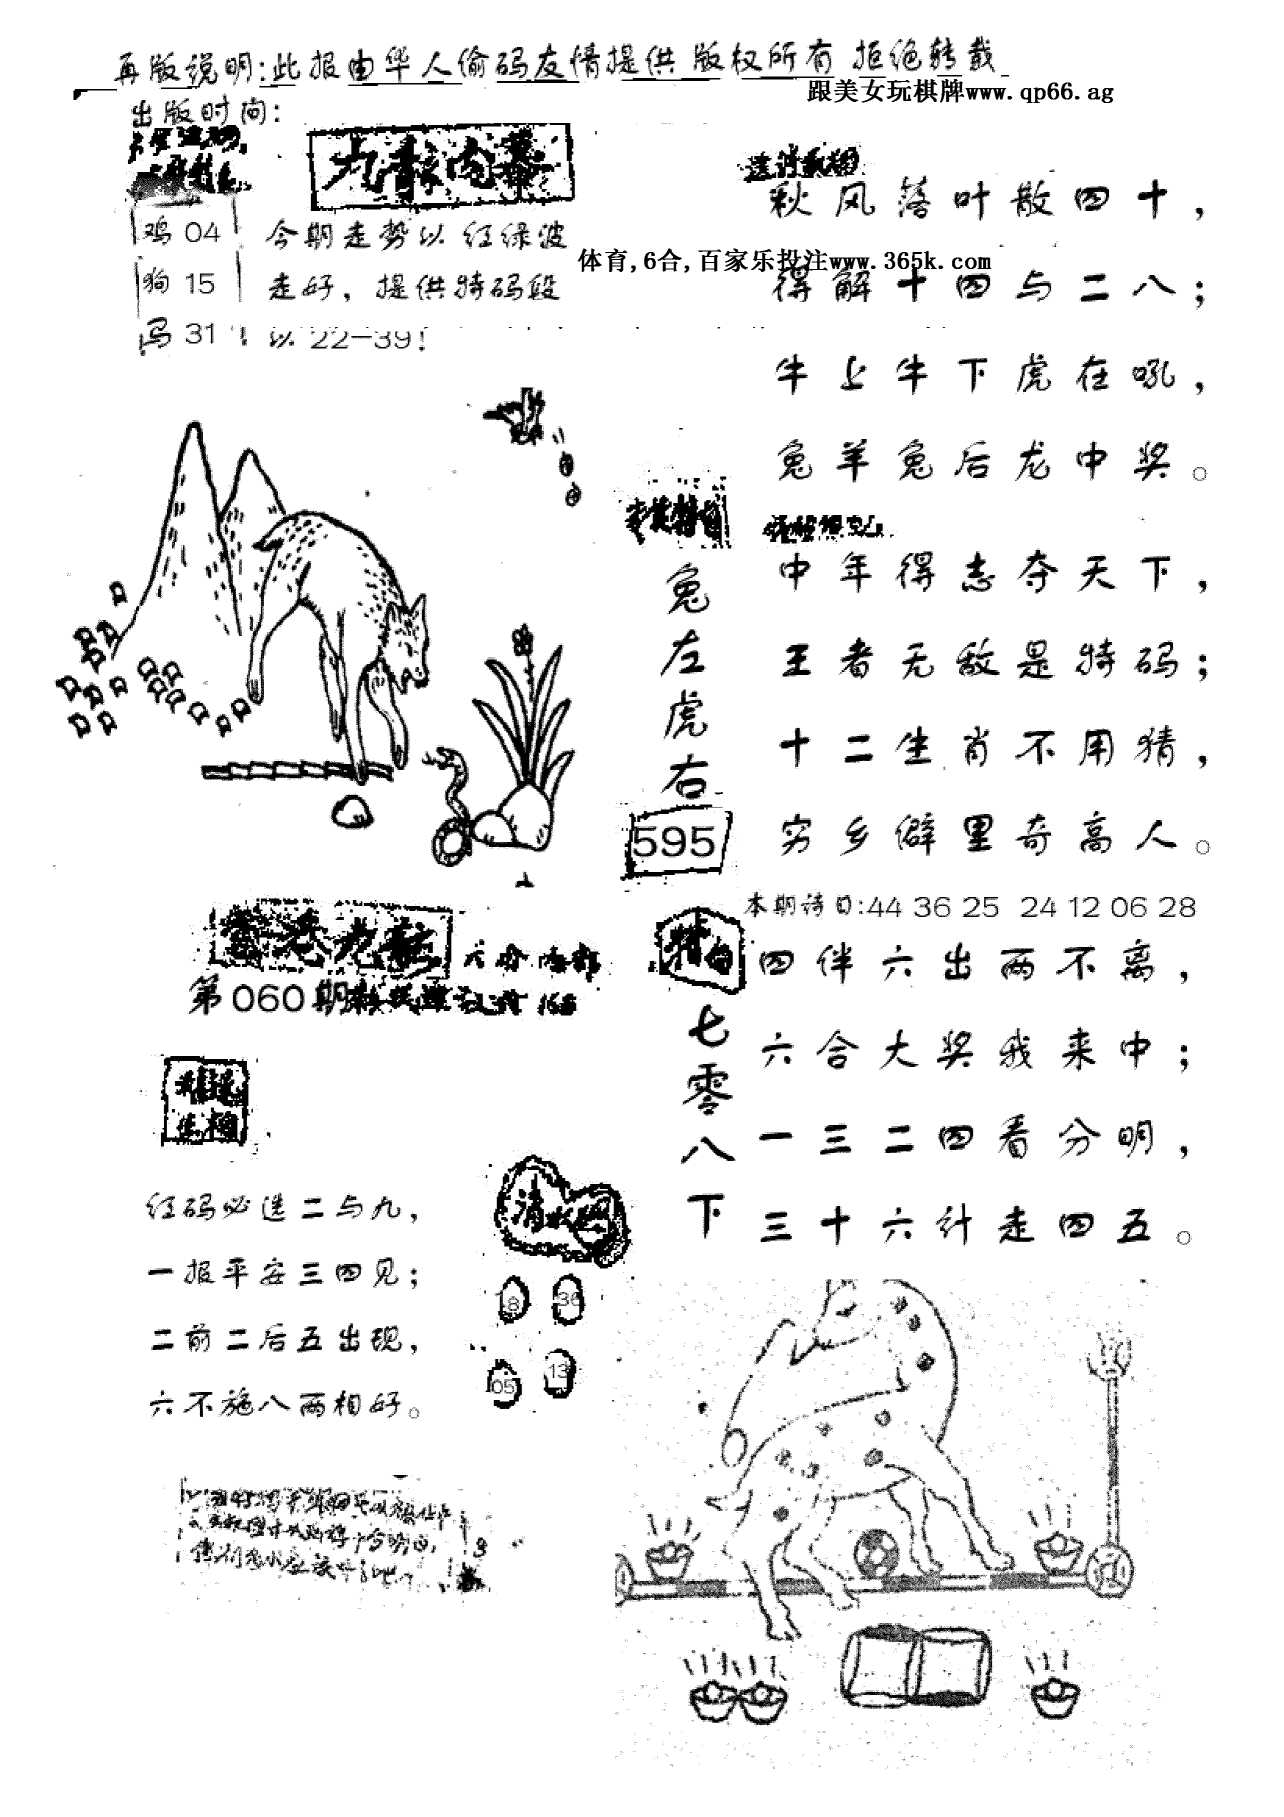 再版说明:此报由华人偷码友情提供 版权所有 拒绝转载
跟美女玩棋牌www.qp66.ag
出版时间:
九龙内幕
鸡 04
狗 15
马 31
今期走势以红绿波
走好，提供特码段
以 22-39!
体育,6合,百家乐投注www.365k.com
秋风落叶散四十，
得解十四与二八；
牛上牛下虎在吼，
兔羊兔后龙中奖。
兔左虎右
595
中年得志夺天下，
王者无敌是特码；
十二生肖不用猜，
穷乡僻里奇高人。
本期诗曰:44 36 25 24 12 06 28
特曰
七零八下
四伴六出两不离，
六合大奖我来中；
一三二四看分明，
三十六计走四五。
香港九龙
第060期
红码必选二与九，
一报平安三四见；
二前二后五出现，
六不施八两相好。
18 36
05 13